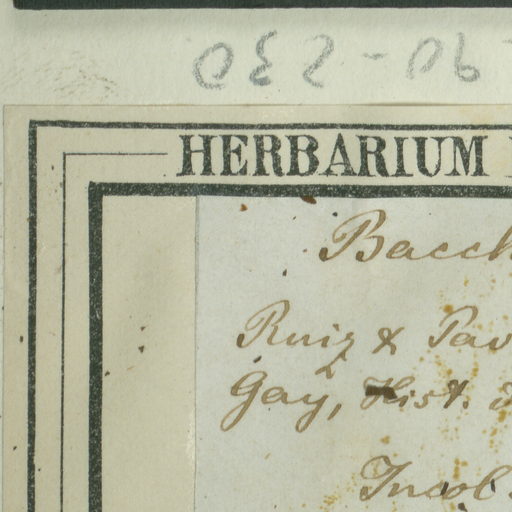 HERBARIUM
Bacch
Ruiz & Pav
Gay, Hist.
Incol.